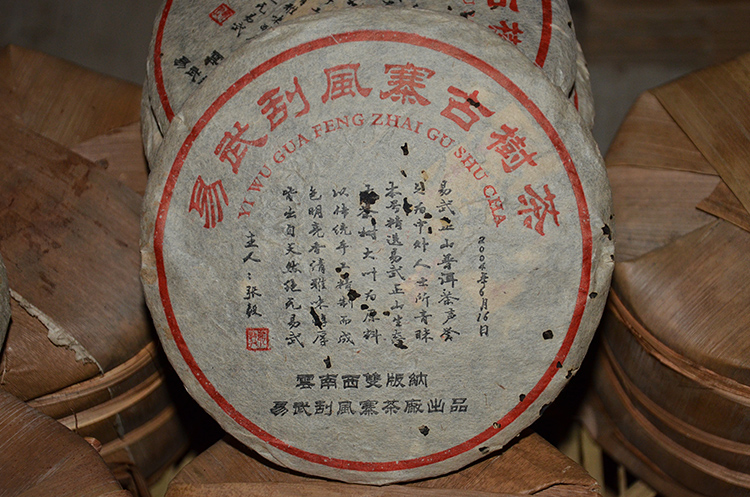 易武刮風寨古樹茶
YI WU GUA FENG ZHAI GU SHU CHA
2004年6月16日
易武正山普洱茶声誉
为中外人士所青睐
本号精选易武正山生态
茶树大叶为原料
以传统手工精制而成
色明亮香清雅味厚
出自天然绝无易武
主人：张毅
雲南西雙版納
易武刮風寨茶廠出品